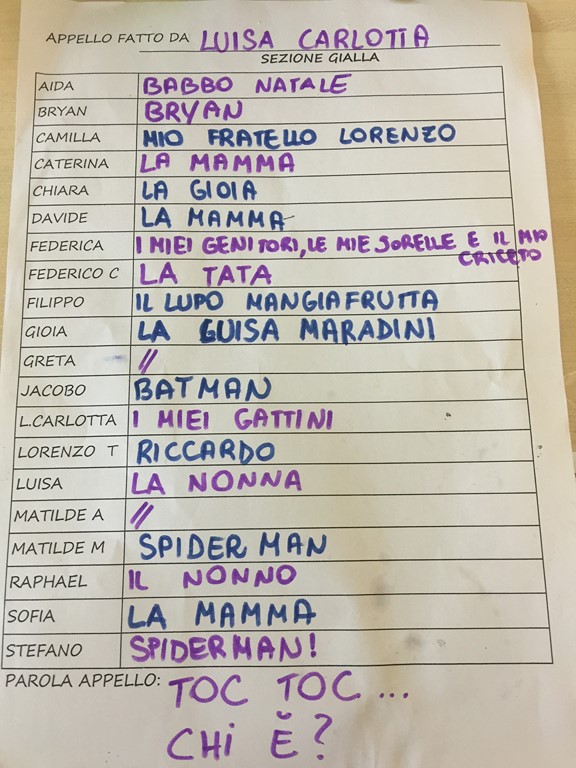 APPELLO FATTO DA LUISA CARLOTTA
SEZIONE GIALLA
AIDA BABBO NATALE
BRYAN BRYAN
CAMILLA MIO FRATELLO LORENZO
CATERINA LA MAMMA
CHIARA LA GIOIA
DAVIDE LA MAMMA
FEDERICA I MIEI GENITORI, LE MIE SORELLE E IL MIO
CRICETO
FEDERICO C LA TATA
FILIPPO IL LUPO MANGIAFRUTTA
GIOIA LA GUISA MARADINI
GRETA //
JACOBO BATMAN
L.CARLOTTA I MIEI GATTINI
LORENZO T RICCARDO
LUISA LA NONNA
MATILDE A //
MATILDE M SPIDER MAN
RAPHAEL IL NONNO
SOFIA LA MAMMA
STEFANO SPIDERMAN!
PAROLA APPELLO: TOC TOC...
CHI È?